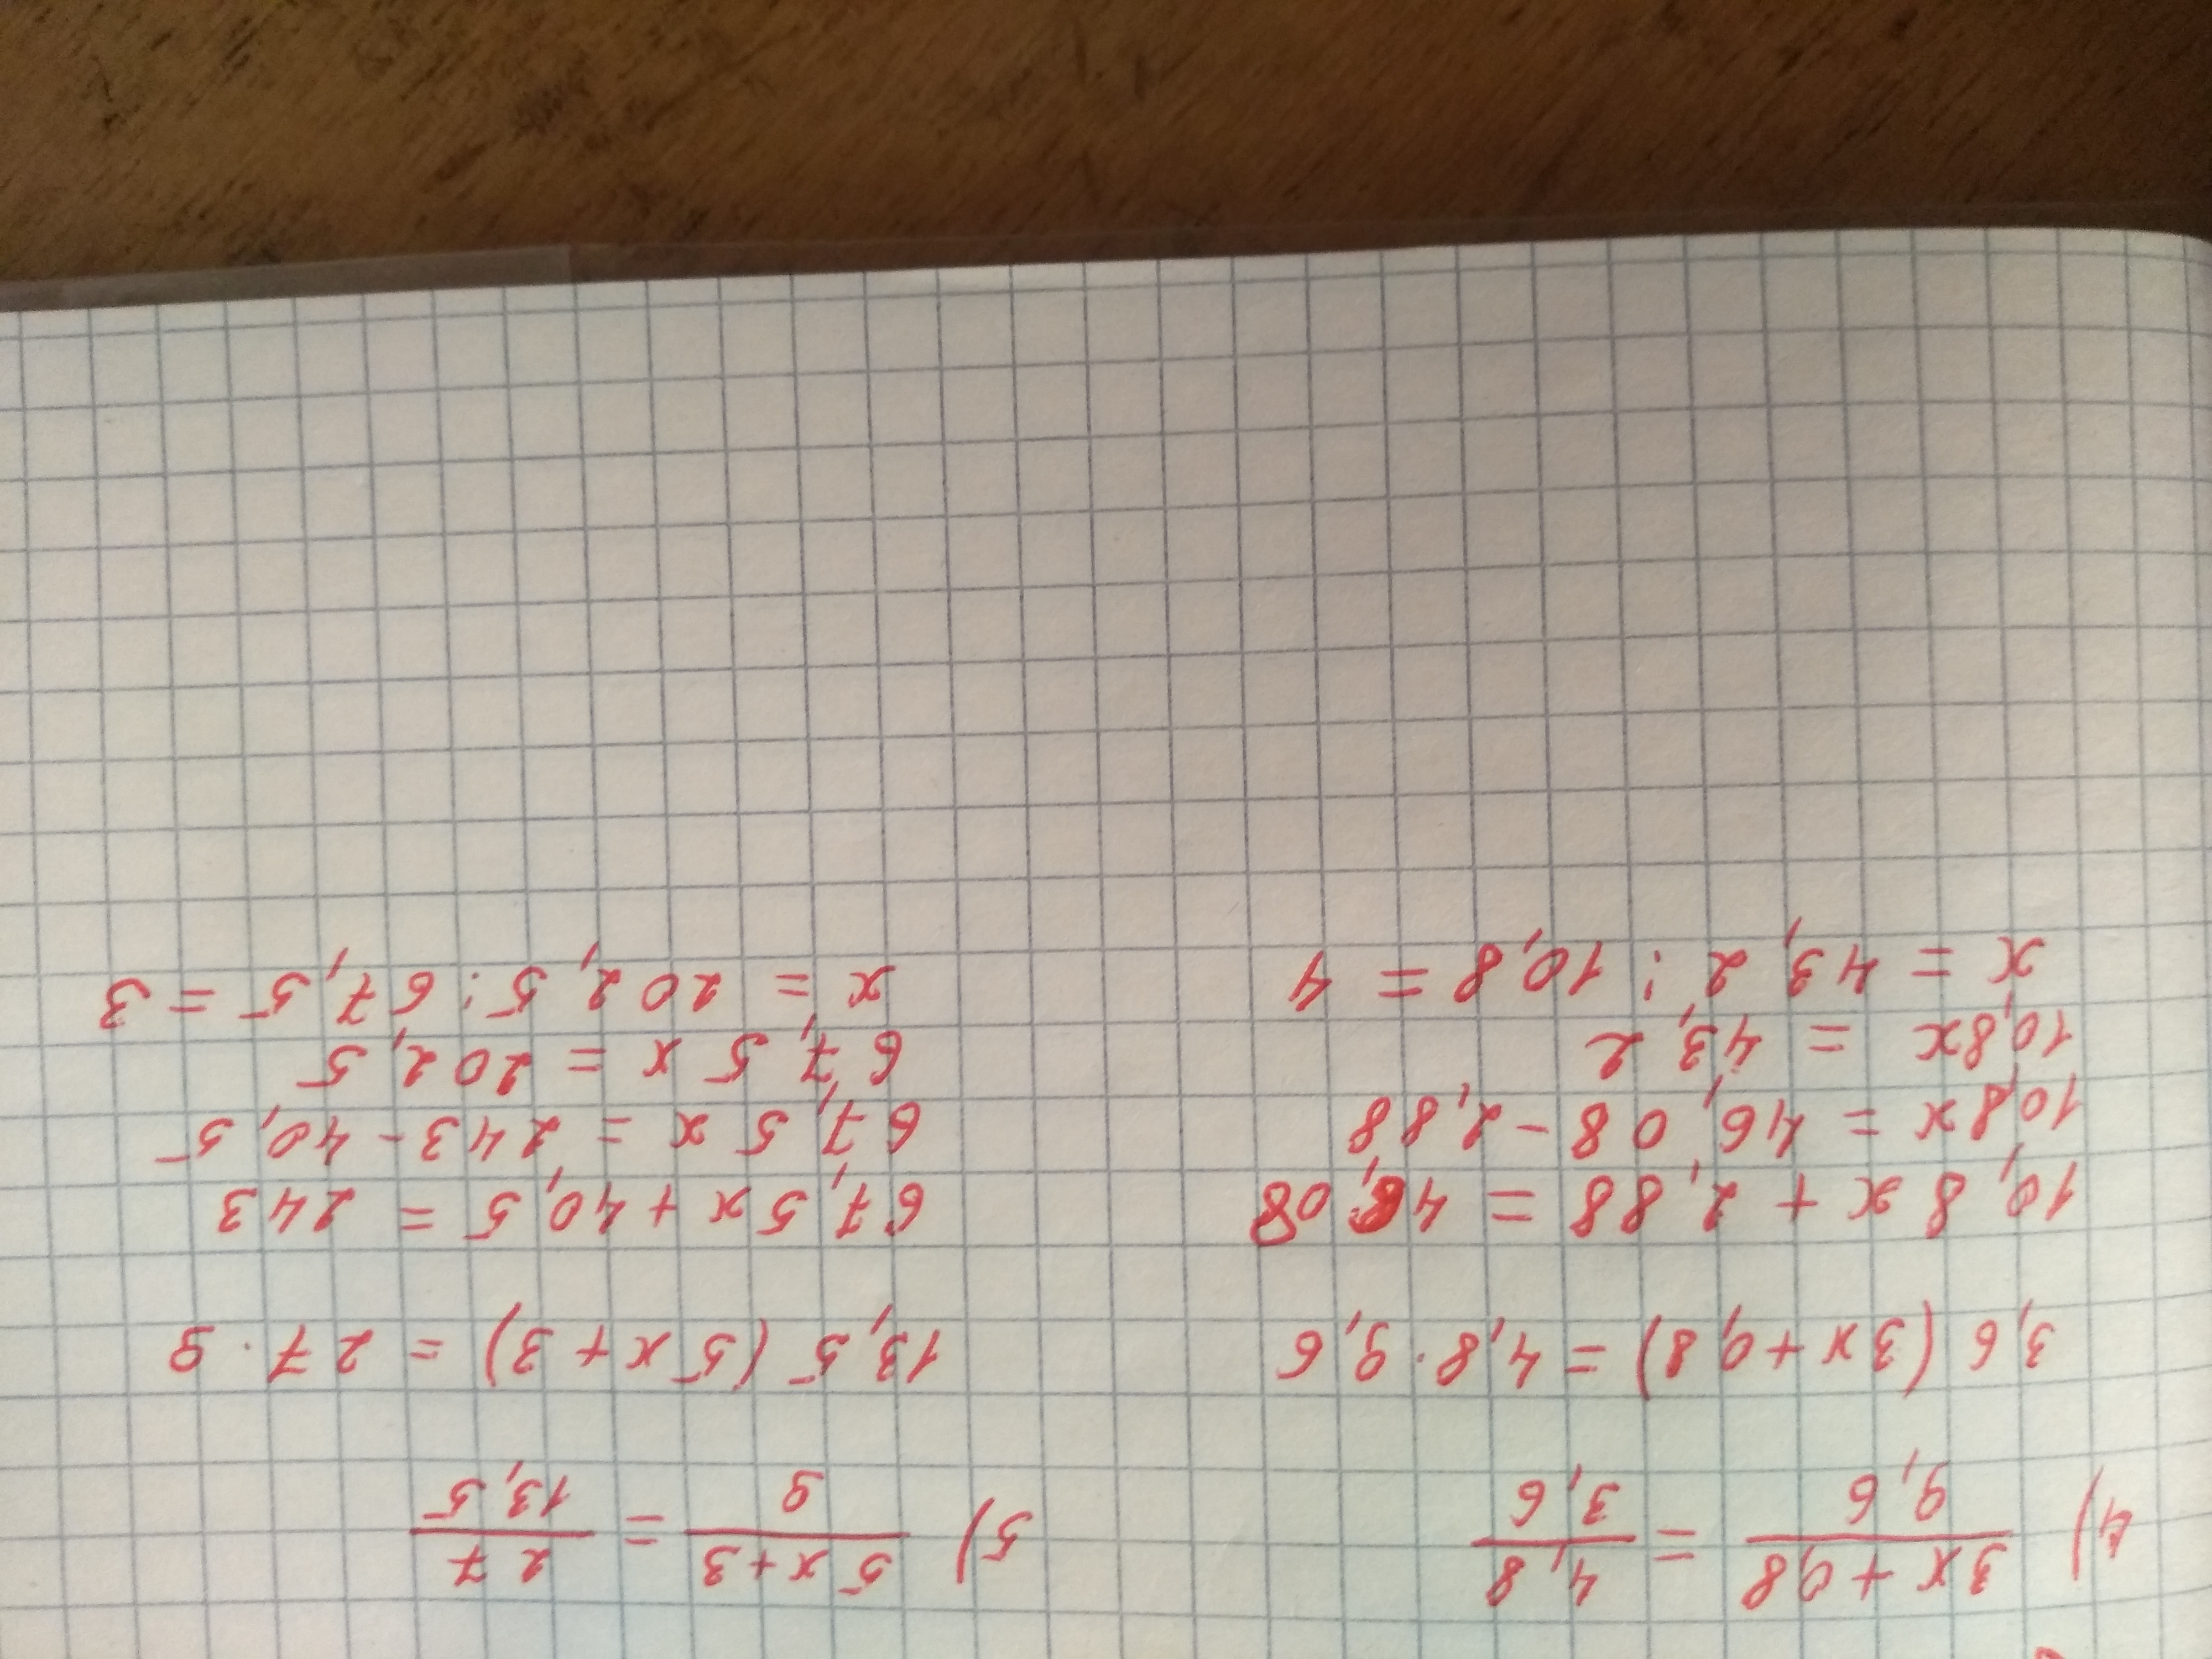 4) (3x + 0,8)/9,6 = 4,8/3,6
3,6 (3x + 0,8) = 4,8 · 9,6
10,8x + 2,88 = 46,08
10,8x = 46,08 - 2,88
10,8x = 43,2
x = 43,2 : 10,8 = 4
5) (5x + 3)/9 = 27/13,5
13,5 (5x + 3) = 27 · 9
67,5x + 40,5 = 243
67,5x = 243 - 40,5
67,5x = 202,5
x = 202,5 : 67,5 = 3